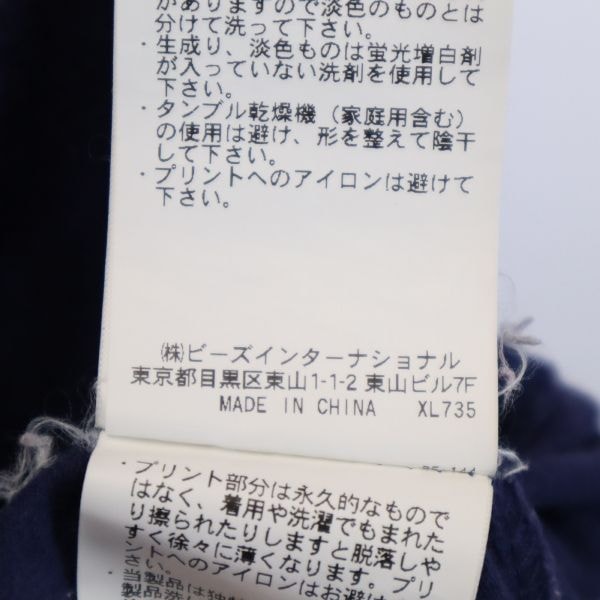 がありますので淡色のものとは
分けて洗って下さい。
・生成り、淡色ものは蛍光増白剤
が入っていない洗剤を使用して
下さい。
・タンブル乾燥機（家庭用含む）
の使用は避け、形を整えて陰干
して下さい。
・プリントへのアイロンは避けて
下さい。
㈱ビーズインターナショナル
東京都目黒区東山1-1-2 東山ビル7F
MADE IN CHINA XL735
・プリント部分は永久的なもので
はなく、着用や洗濯でもまれた
り擦られたりしますと脱落しや
すく徐々に薄くなります。プリ
ントへのアイロンはお避け
さい。
・当製品は独